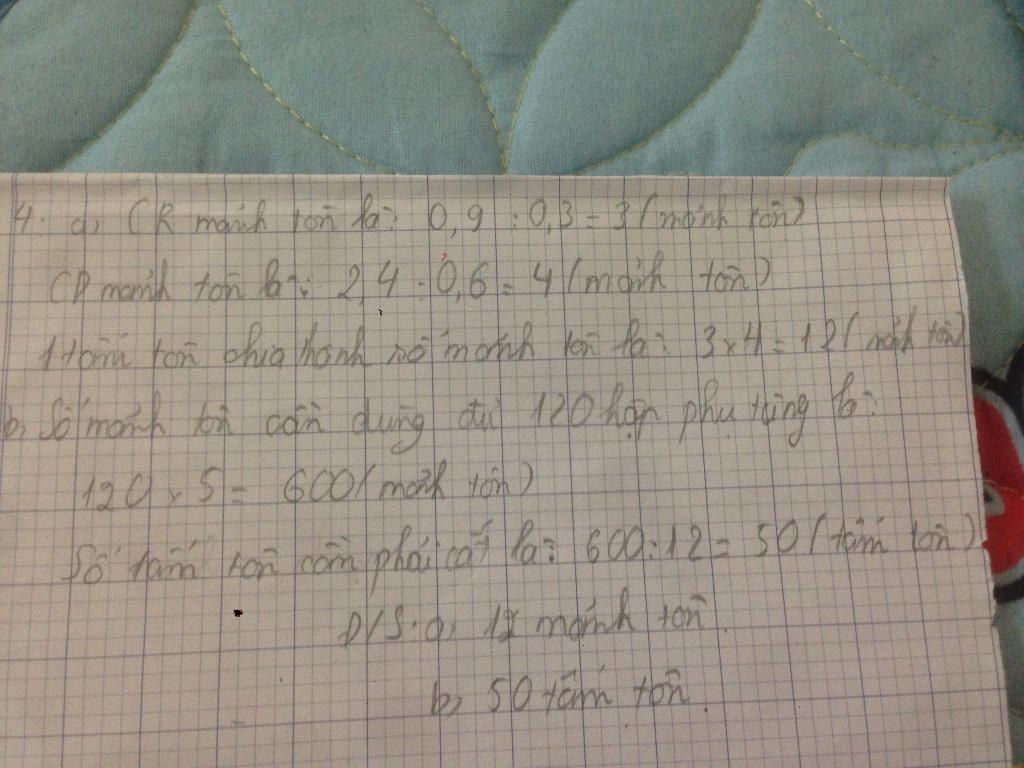 4. a, CR mảnh tôn là: 0,9 : 0,3 = 3 (mảnh tôn)
CD mảnh tôn là: 2,4 : 0,6 = 4 (mảnh tôn)
1 tấm tôn chia thành số mảnh tôn là: 3 x 4 = 12 (mảnh tôn)
b, Số mảnh tôn cần dùng đủ 120 hộp phụ tùng là:
120 x 5 = 600 (mảnh tôn)
Số tấm tôn cần phải cắt là: 600 : 12 = 50 (tấm tôn)
Đ/S: a, 12 mảnh tôn.
b, 50 tấm tôn.